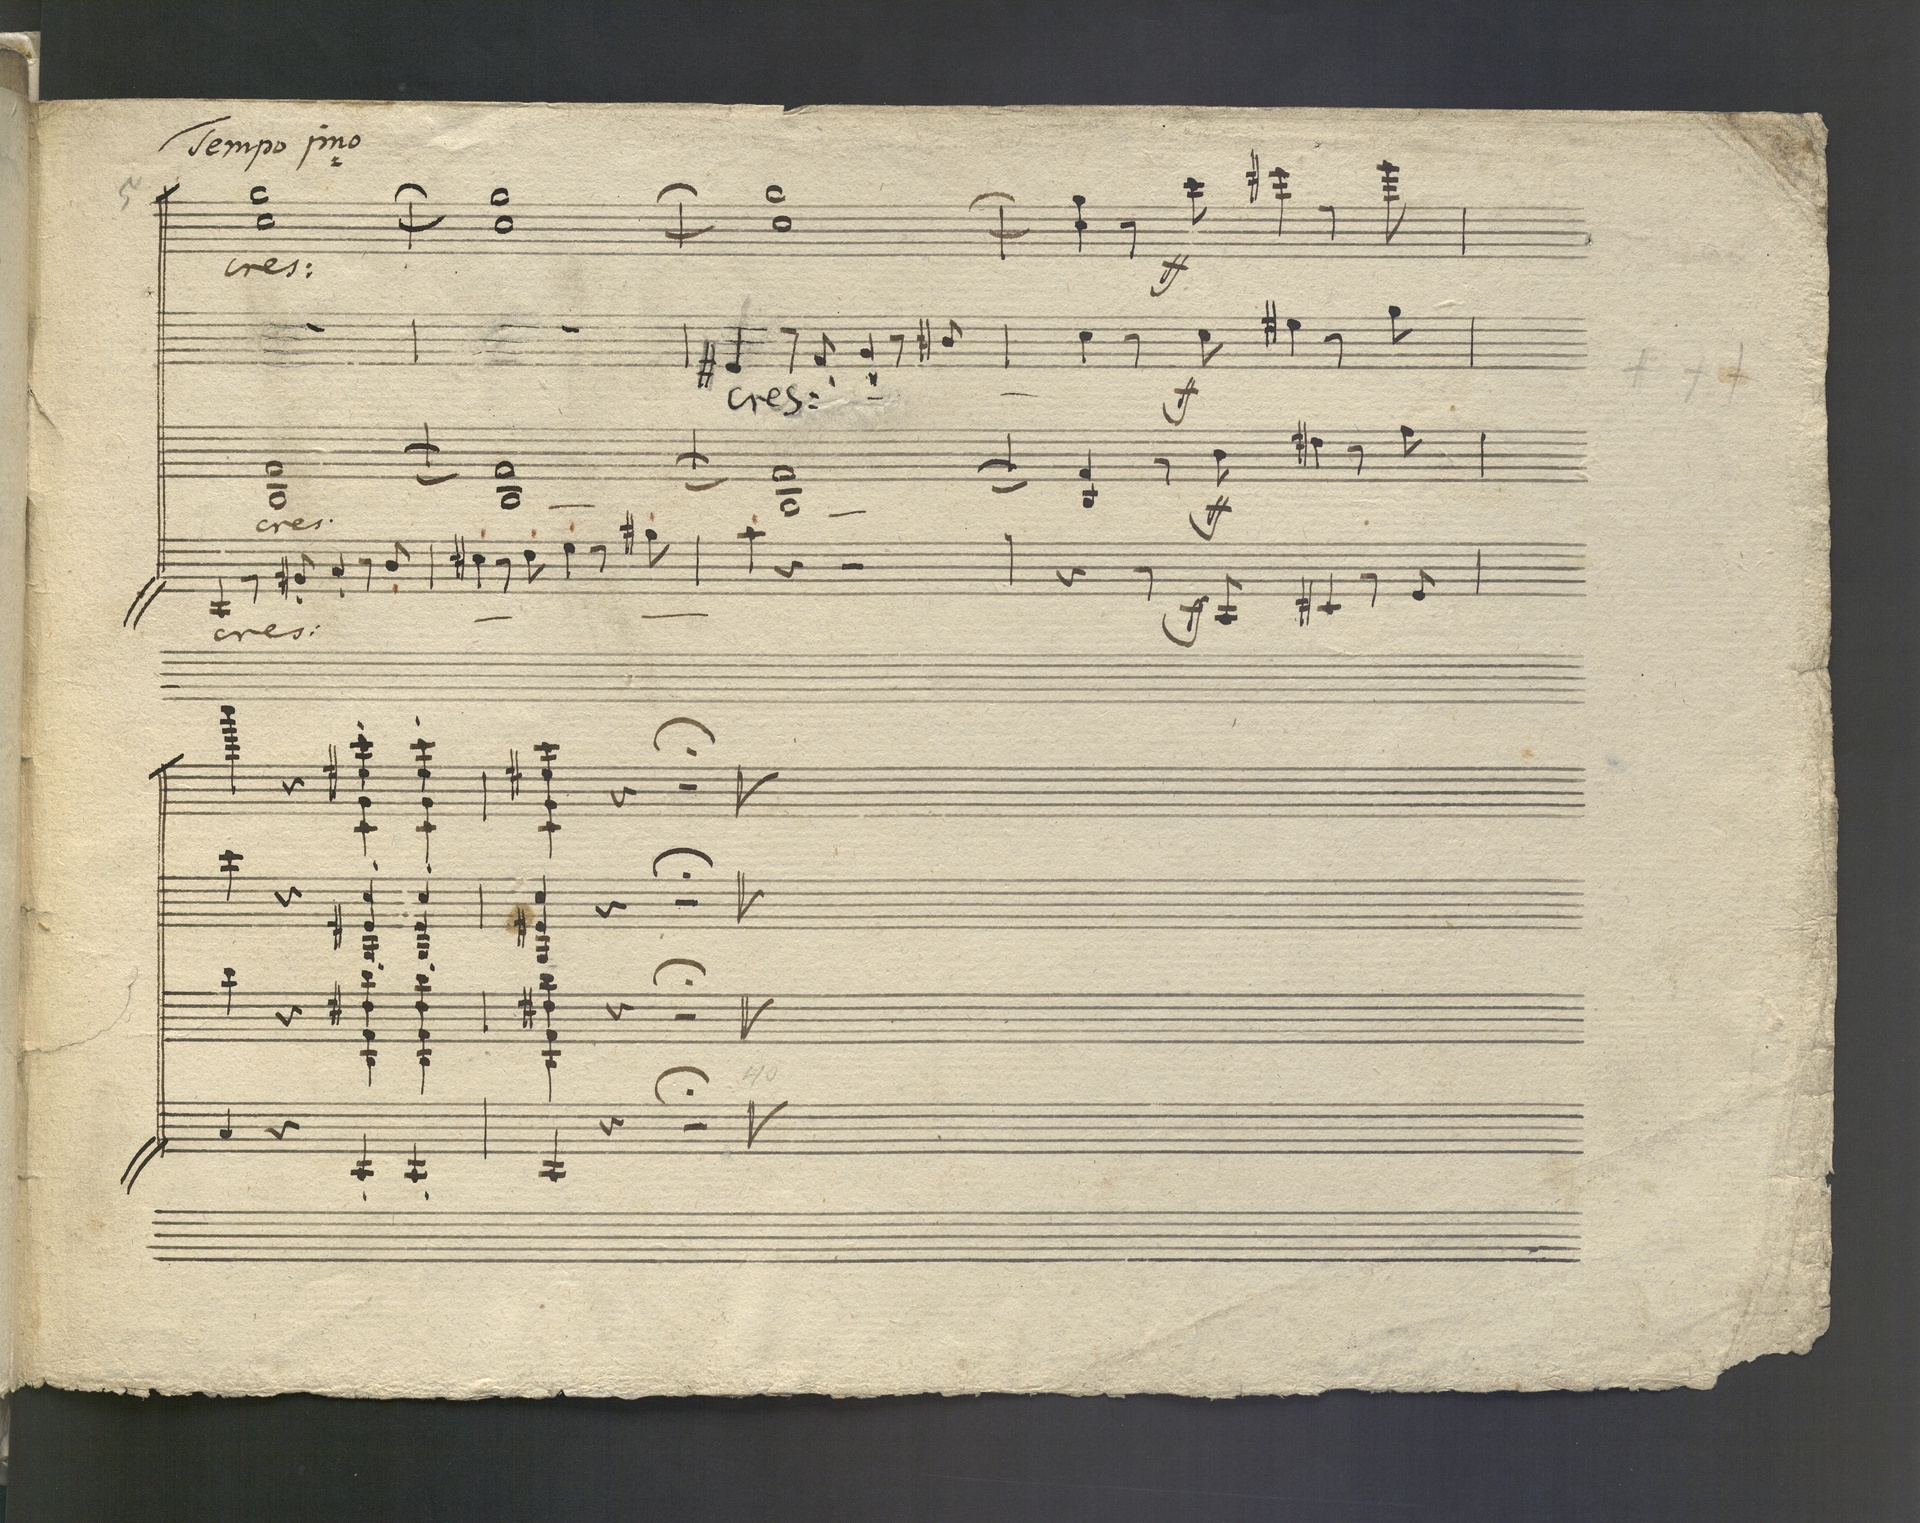 Tempo pmo
5
cres:
ff
cres:
ff
cres.
ff
cres:
ff
40